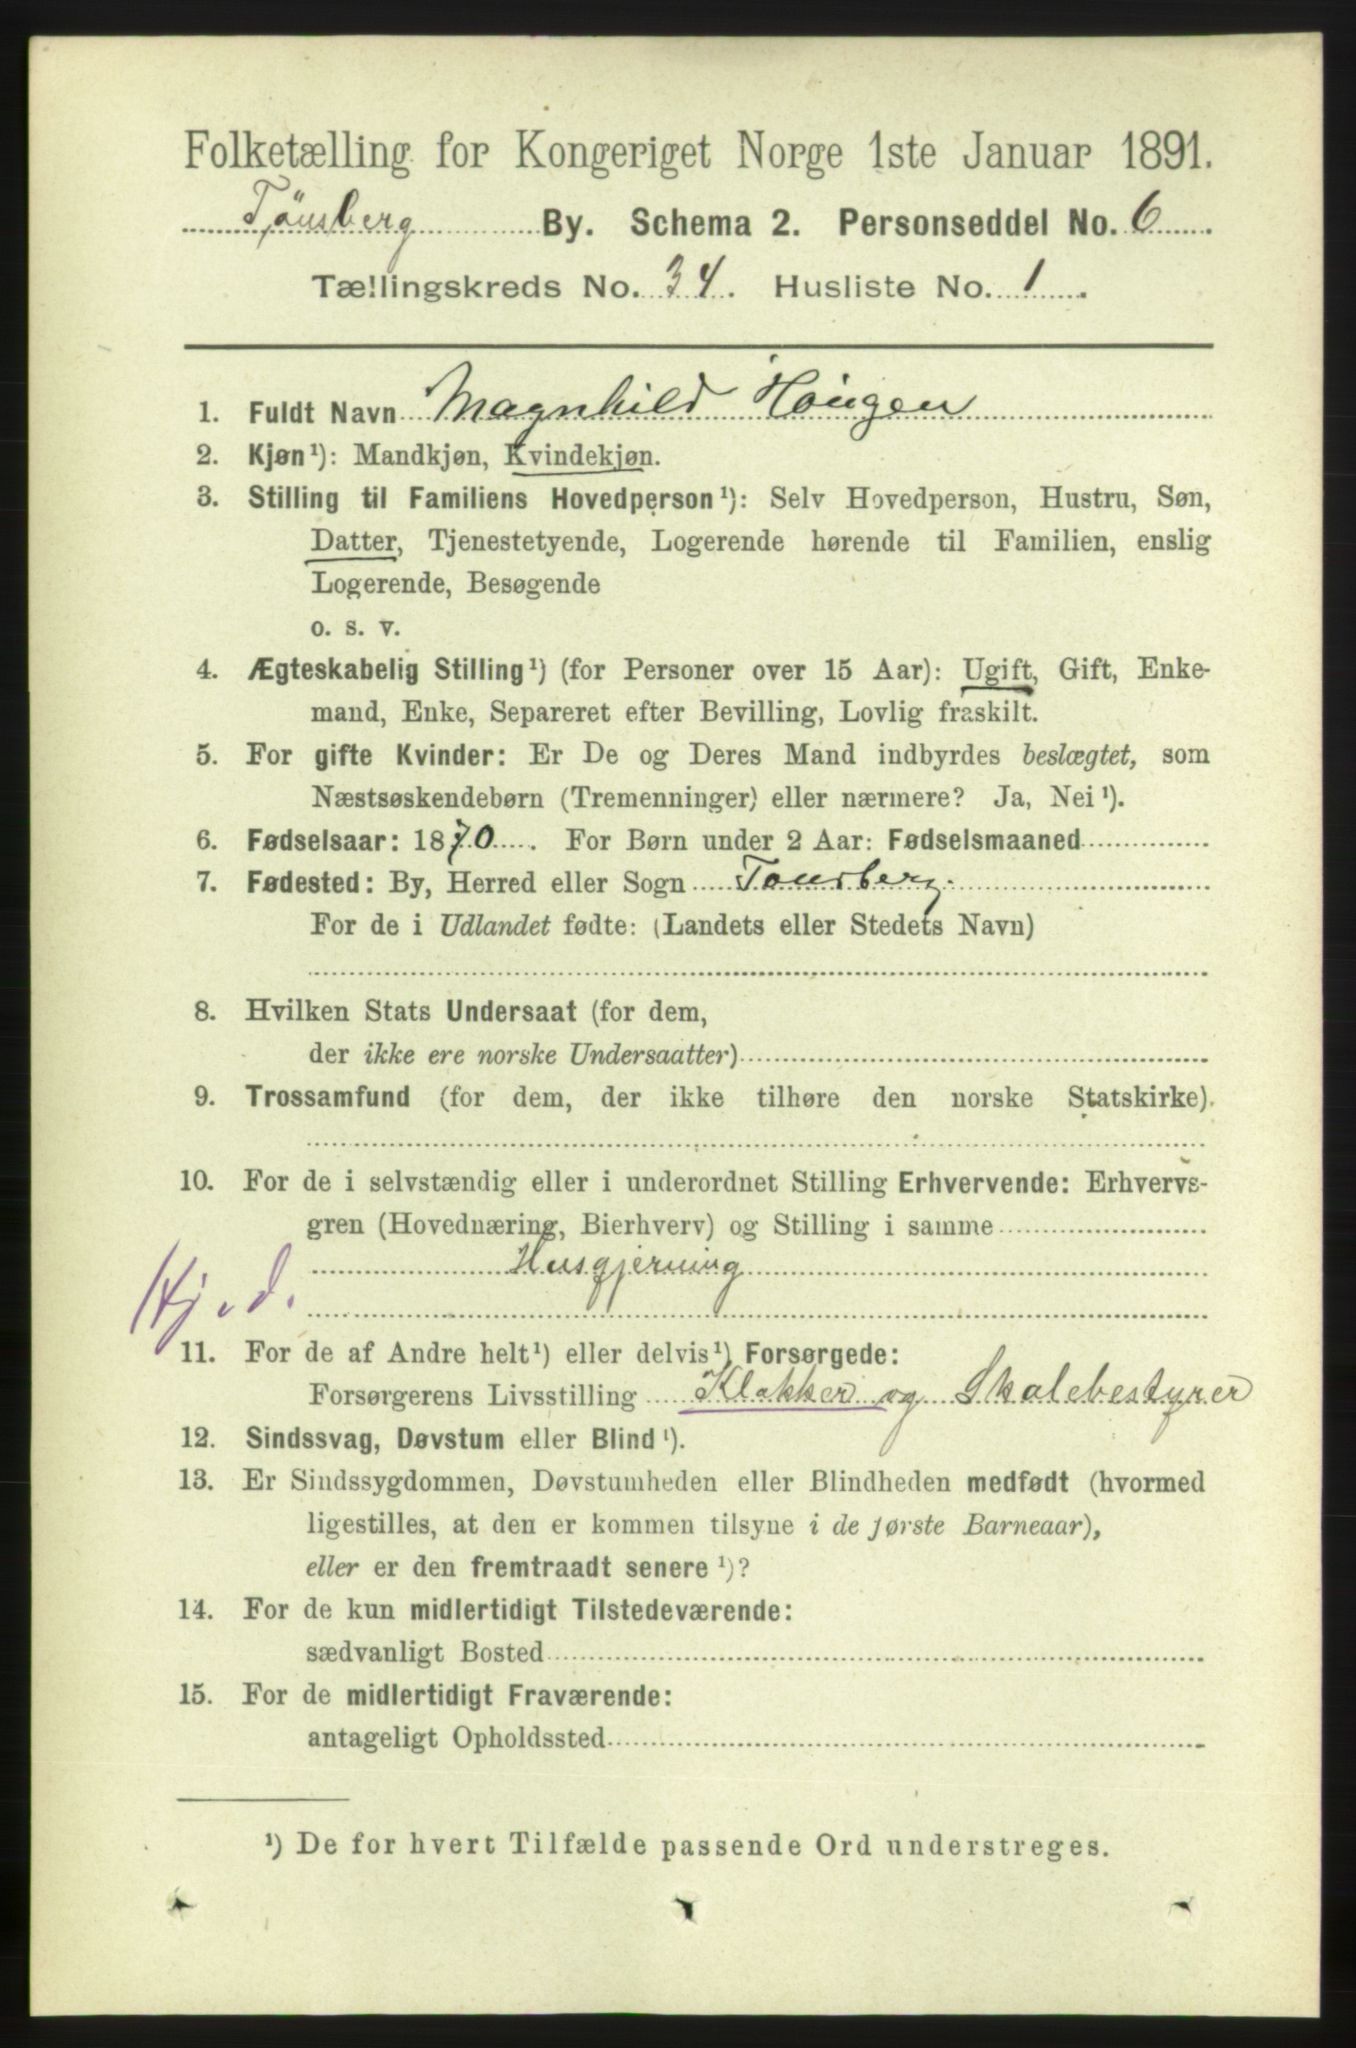 Folketælling for Kongeriget Norge 1ste Januar 1891.
Tönsberg By. Schema 2. Personseddel No. 6
Tællingskreds No. 34. Husliste No. 1.
1. Fuldt Navn Magnhild Hougen
2. Kjøn¹): Mandkjøn, Kvindekjøn.
3. Stilling til Familiens Hovedperson¹): Selv Hovedperson, Hustru, Søn,
Datter, Tjenestetyende, Logerende hørende til Familien, enslig
Logerende, Besøgende
o. s. v.
4. Ægteskabelig Stilling¹) (for Personer over 15 Aar): Ugift, Gift, Enke-
mand, Enke, Separeret efter Bevilling, Lovlig fraskilt.
5. For gifte Kvinder: Er De og Deres Mand indbyrdes beslægtet, som
Næstsøskendebørn (Tremenninger) eller nærmere? Ja, Nei¹).
6. Fødselsaar: 1870. For Børn under 2 Aar: Fødselsmaaned
7. Fødested: By, Herred eller Sogn Tønsberg.
For de i Udlandet fødte: (Landets eller Stedets Navn)
8. Hvilken Stats Undersaat (for dem,
der ikke ere norske Undersaatter)
9. Trossamfund (for dem, der ikke tilhøre den norske Statskirke).
10. For de i selvstændig eller i underordnet Stilling Erhvervende: Erhvervs-
gren (Hovednæring, Bierhverv) og Stilling i samme
Husgjerning
Hj. d.
11. For de af Andre helt¹) eller delvis¹) Forsørgede:
Forsørgerens Livsstilling Klokker og Skolebestyrer
12. Sindssvag, Døvstum eller Blind¹).
13. Er Sindssygdommen, Døvstumheden eller Blindheden medfødt (hvormed
ligestilles, at den er kommen tilsyne i de første Barneaar),
eller er den fremtraadt senere¹)?
14. For de kun midlertidigt Tilstedeværende:
sædvanligt Bosted
15. For de midlertidigt Fraværende:
antageligt Opholdssted
¹) De for hvert Tilfælde passende Ord understreges.